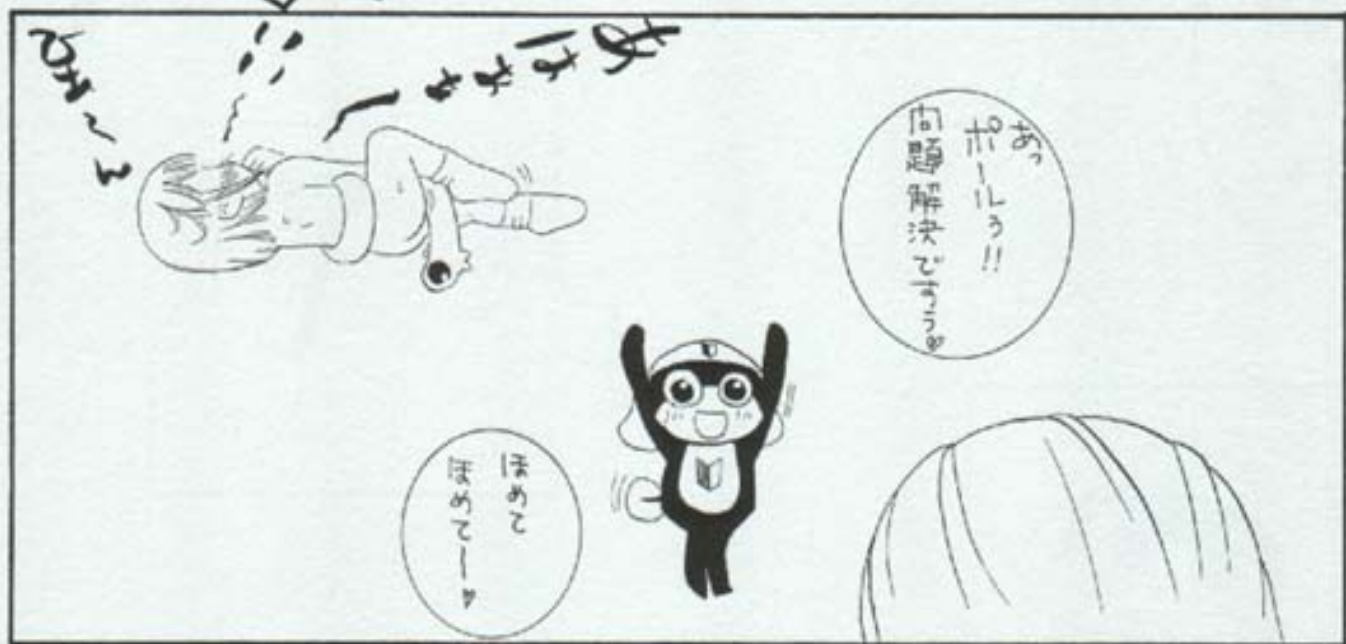 あっ
ポールぅ!!
問題解決ですぅ♥
ほめて
ほめてー♥
あはははー